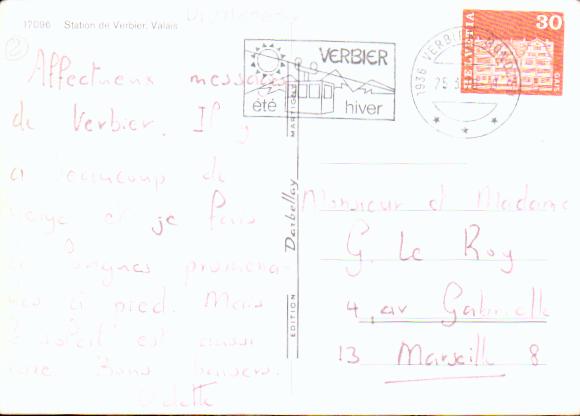 17096 Station de Verbier, Valais
Affectueux messages
de Verbier. Il y
a beaucoup de
neige et je fais
de longues promena-
des à pied. Mais
le soleil est aussi
rare. Bons baisers.
Odette
EDITION Darbellay MARTIGNY
VERBIER
été hiver
1936 VERBIER
HELVETIA
30
GAIS
Monsieur et Madame
G. Le Roy
4, av Gabrielle
13 Marseille 8